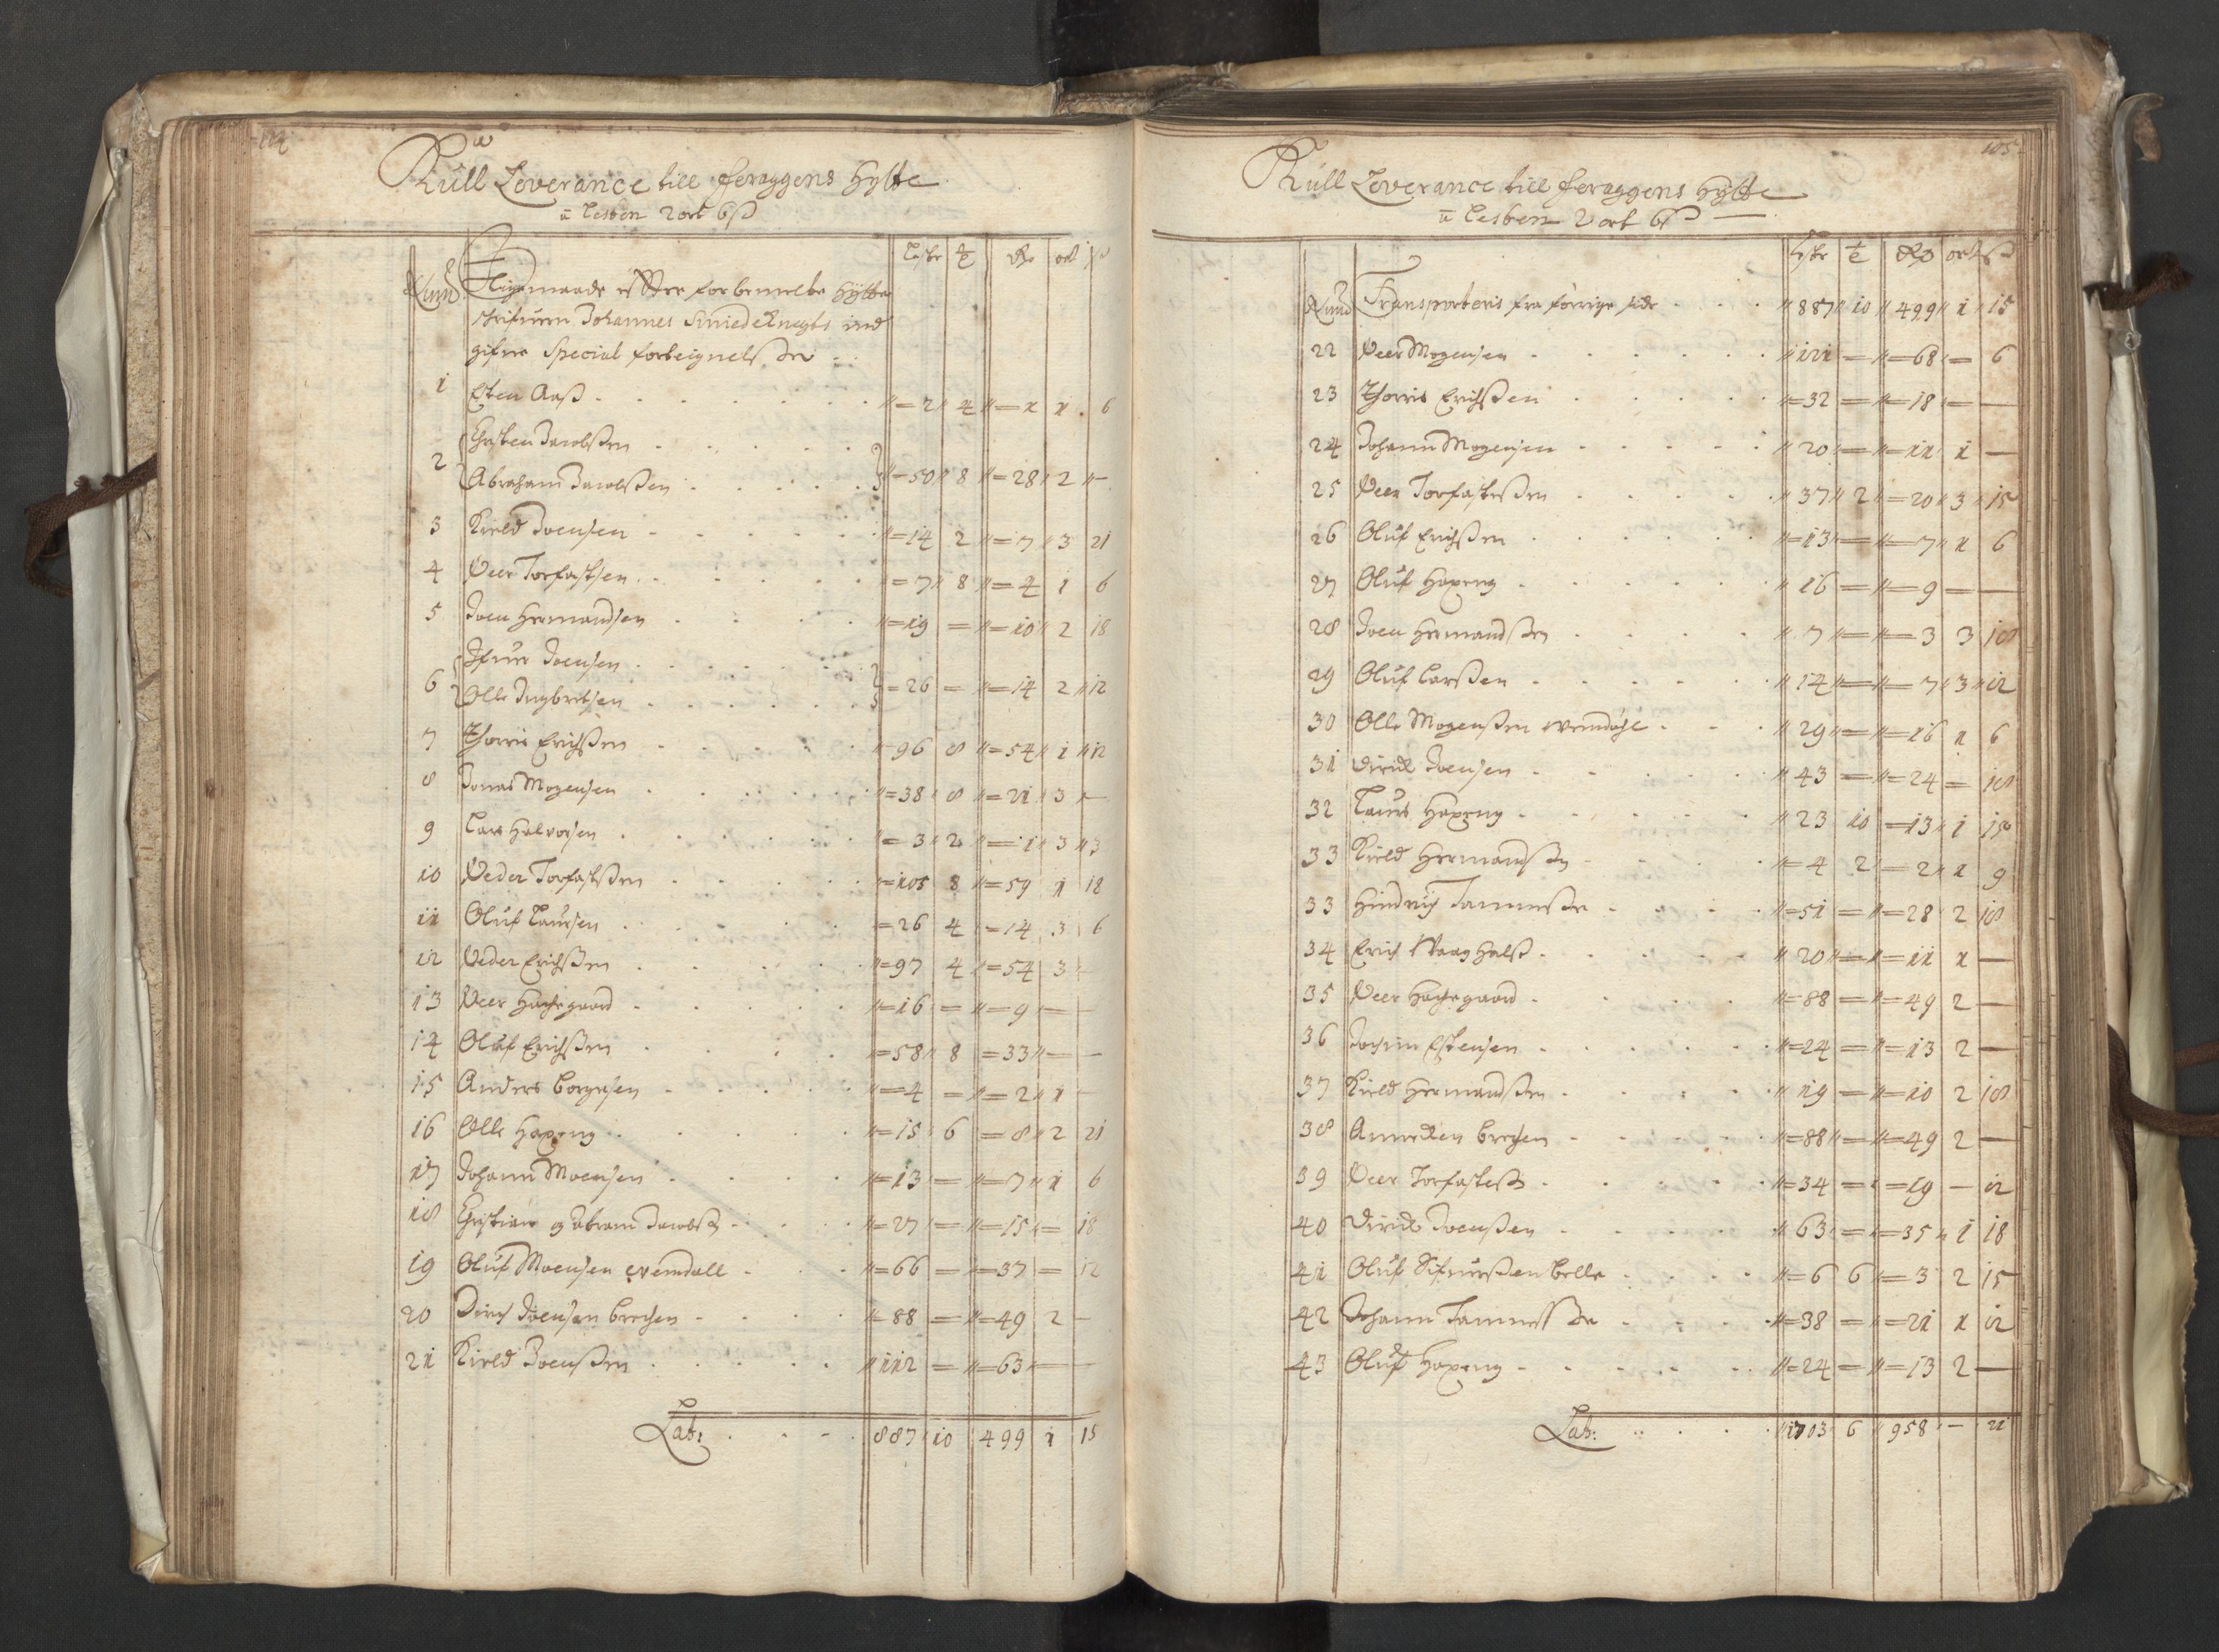 104
Kull Leverance till feraggens Hÿtte
a Lesten 2 ort 6 ß
Lester tr Rdr ort ß
Num Ligemaade efter forbemelte Hÿtte
schrifuern Johannes Smiedeknegts ind
gifne Special forteignelsser
1 Esten Aaß 2 4 1 1 6
2 Christen Jacobßen
Abraham Jacobßen 50 8 28 2 —
3 Kield Joensen 14 2 7 3 21
4 Peer Torfastsen 7 8 4 1 6
5 Joen Hermandsen 19 — 10 2 18
6 Joensen
Olle Ingbretsen 26 — 14 2 12
7 Thorris Erichßen 96 8 54 1 12
8 Jonas Mogensen 38 8 21 3 —
9 Lars Halvorsen 3 2 1 3 3
10 Peder Torfastßen 105 8 59 1 18
11 Oluf Laursen 26 4 14 3 6
12 Peder Erichßen 97 4 54 3 —
13 Peer Hachegaard 16 — 9 — —
14 Oluf Erichßen 58 8 33 — —
15 Anders Borgesen 4 — 2 1 —
16 Olle Haxeng 15 6 8 2 21
17 Johann Moensen 13 — 7 1 6
18 Christian og Abram Jacobß 27 — 15 — 18
19 Oluf Moensen Wemdall 66 — 37 — 12
20 Dirich Joensen Brechen 88 — 49 2 —
21 Kield Joenßen 112 — 63 — —
Lat: 887 10 499 1 15
105
Kull Leverance till feraggens Hÿtte
a Lesten 2 ort 6 ß
Lster tr Rdr ort ß
Num Transporteris fra forrige side 887 10 499 1 15
22 Peer Mogensen 121 — 68 — 6
23 Thorris Erichßen 32 — 18 — —
24 Johann Mogensen 20 — 11 1 —
25 Peer Torfastßen 37 2 20 3 15
26 Oluf Erichßen 13 — 7 1 6
27 Oluf Haxeng 16 — 9 — —
28 Joen Hermandßen 7 — 3 3 18
29 Oluf Larßen 14 — 7 3 12
30 Olle Mogenßen Wemdahl 29 — 16 1 6
31 Dirich Joensen 43 — 24 — 18
32 Laurs Haxeng 23 10 13 1 18
33 Kield Hermandßen 4 2 2 1 9
33 Hindrich Tammeßen 51 — 28 2 18
34 Erich Waaghalß 20 — 11 1 —
35 Peer Hachegaard 88 — 49 2 —
36 Jochim Estensen 24 — 13 2 —
37 Kield Hermandßen 19 — 10 2 18
38 Brechen 88 — 49 2 —
39 Peer Torfasteß 34 — 19 — 12
40 Dirich Joenßen 63 — 35 1 18
41 Oluf Sifuerßen Belle 6 6 3 2 15
42 Johann Tammesßen 38 — 21 1 12
43 Oluf Haxeng 24 — 13 2 —
Lat: 1703 6 958 — 21